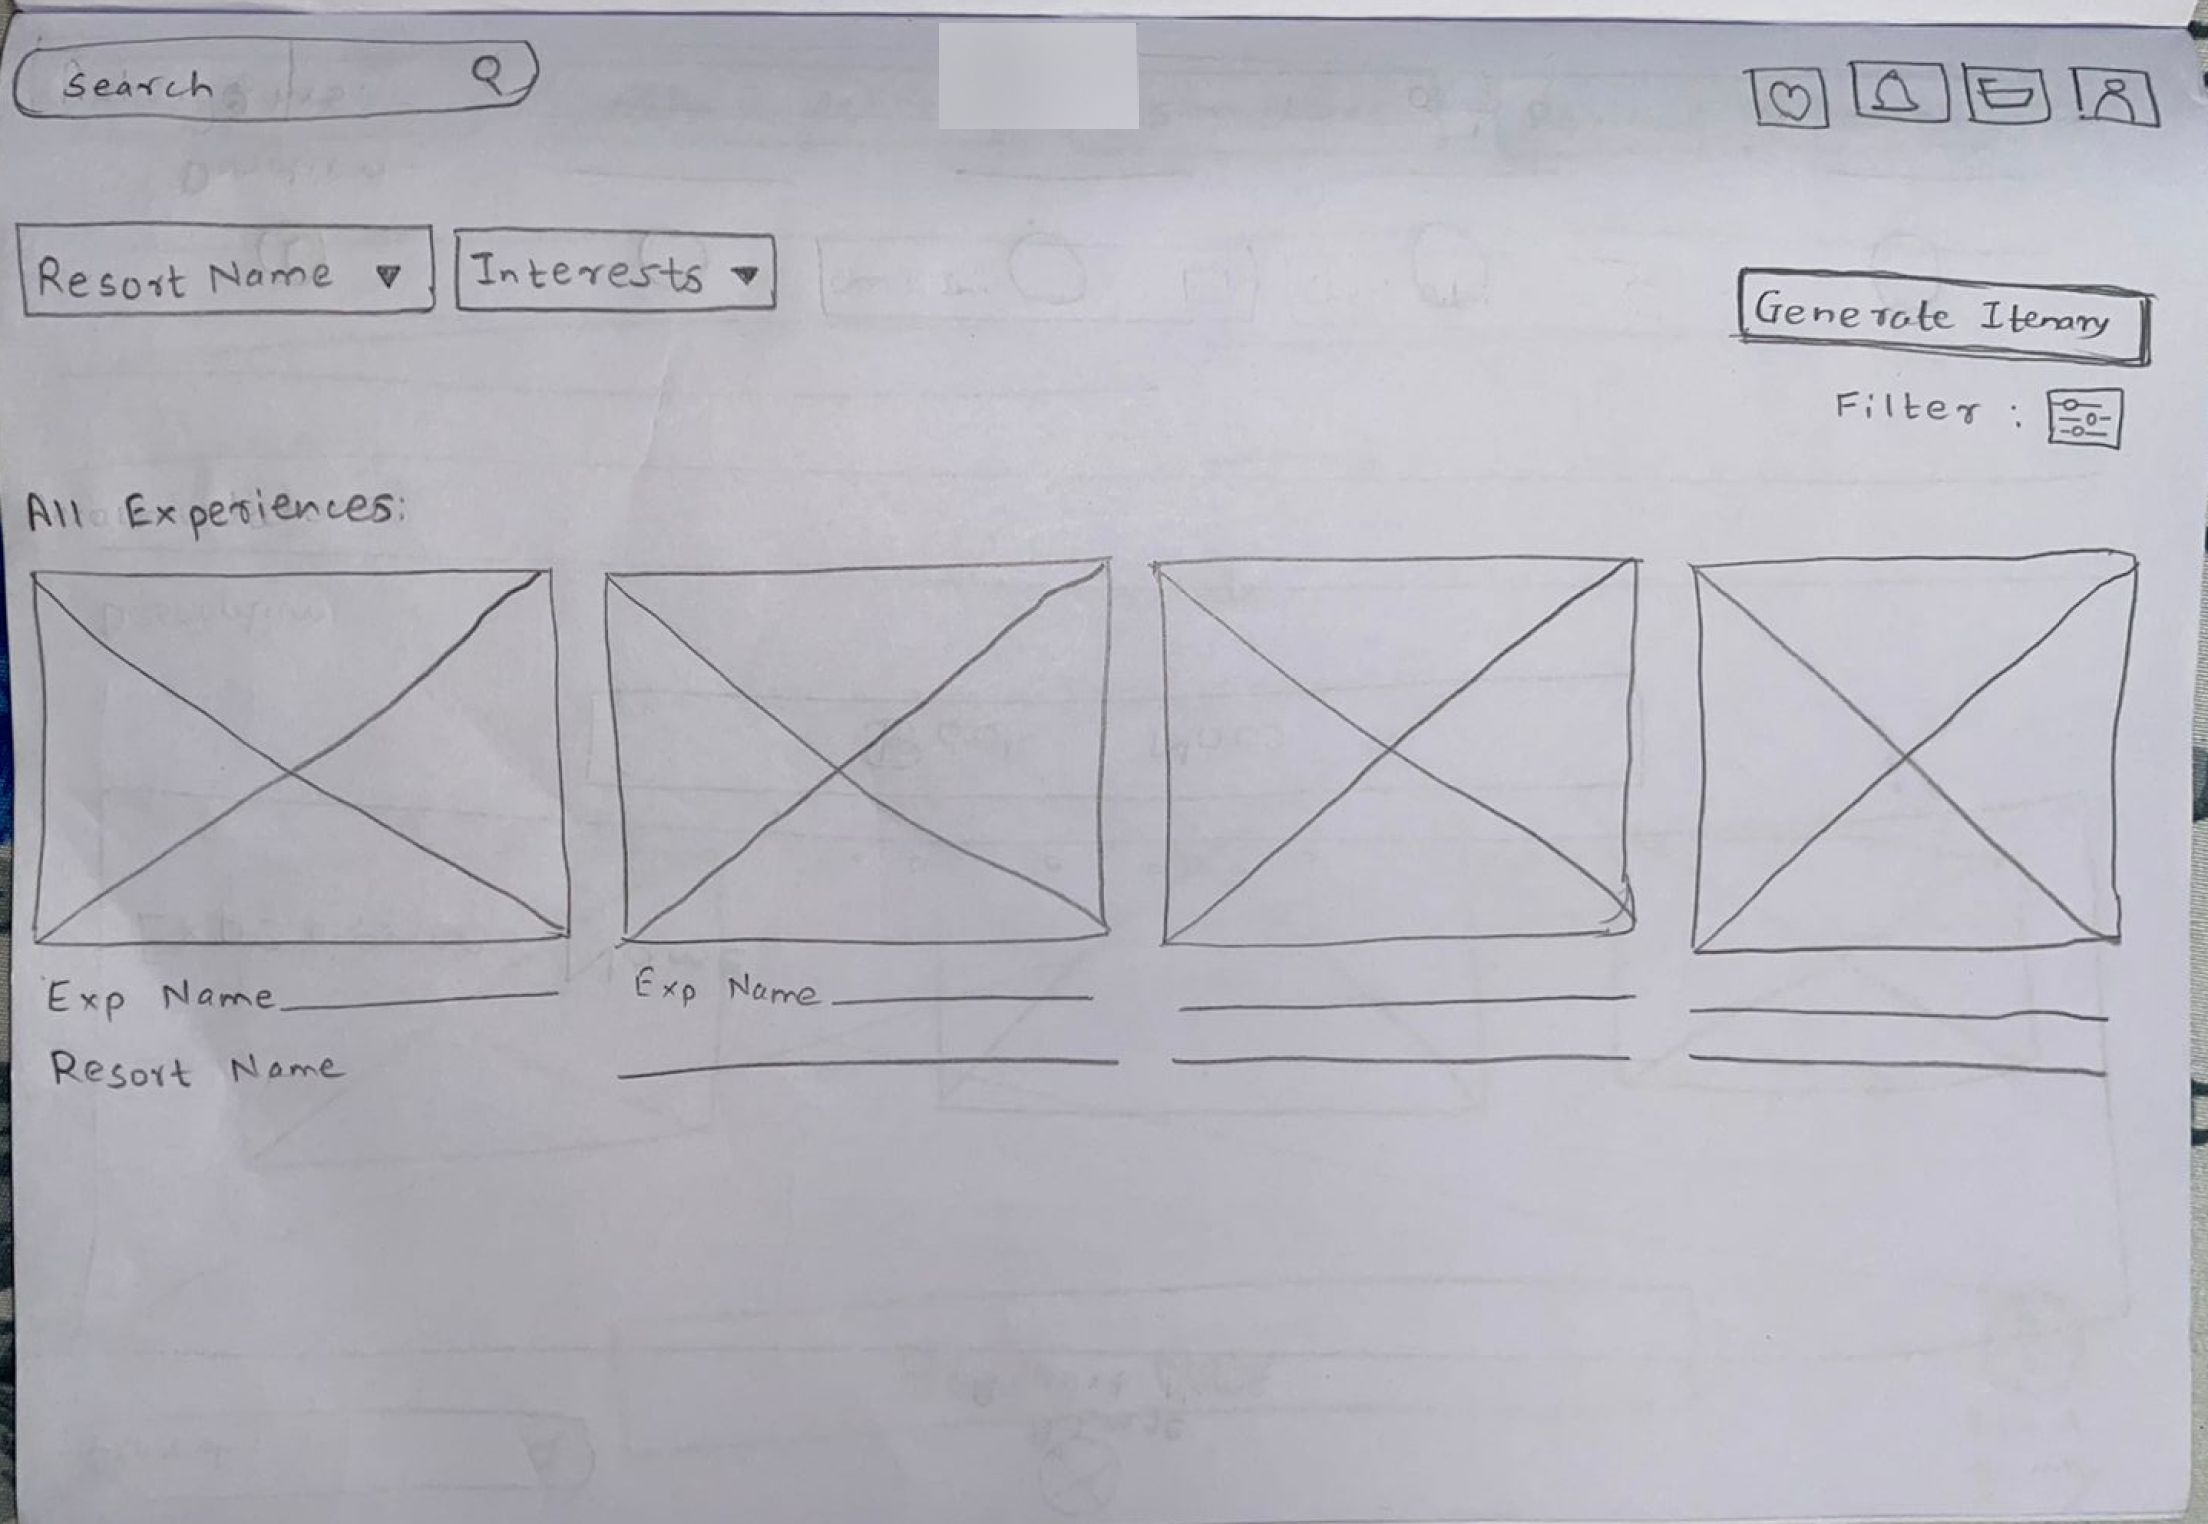 search
Resort Name
Interests
Generate Itenary
Filter :
All Experiences:
Exp Name
Exp Name
Resort Name